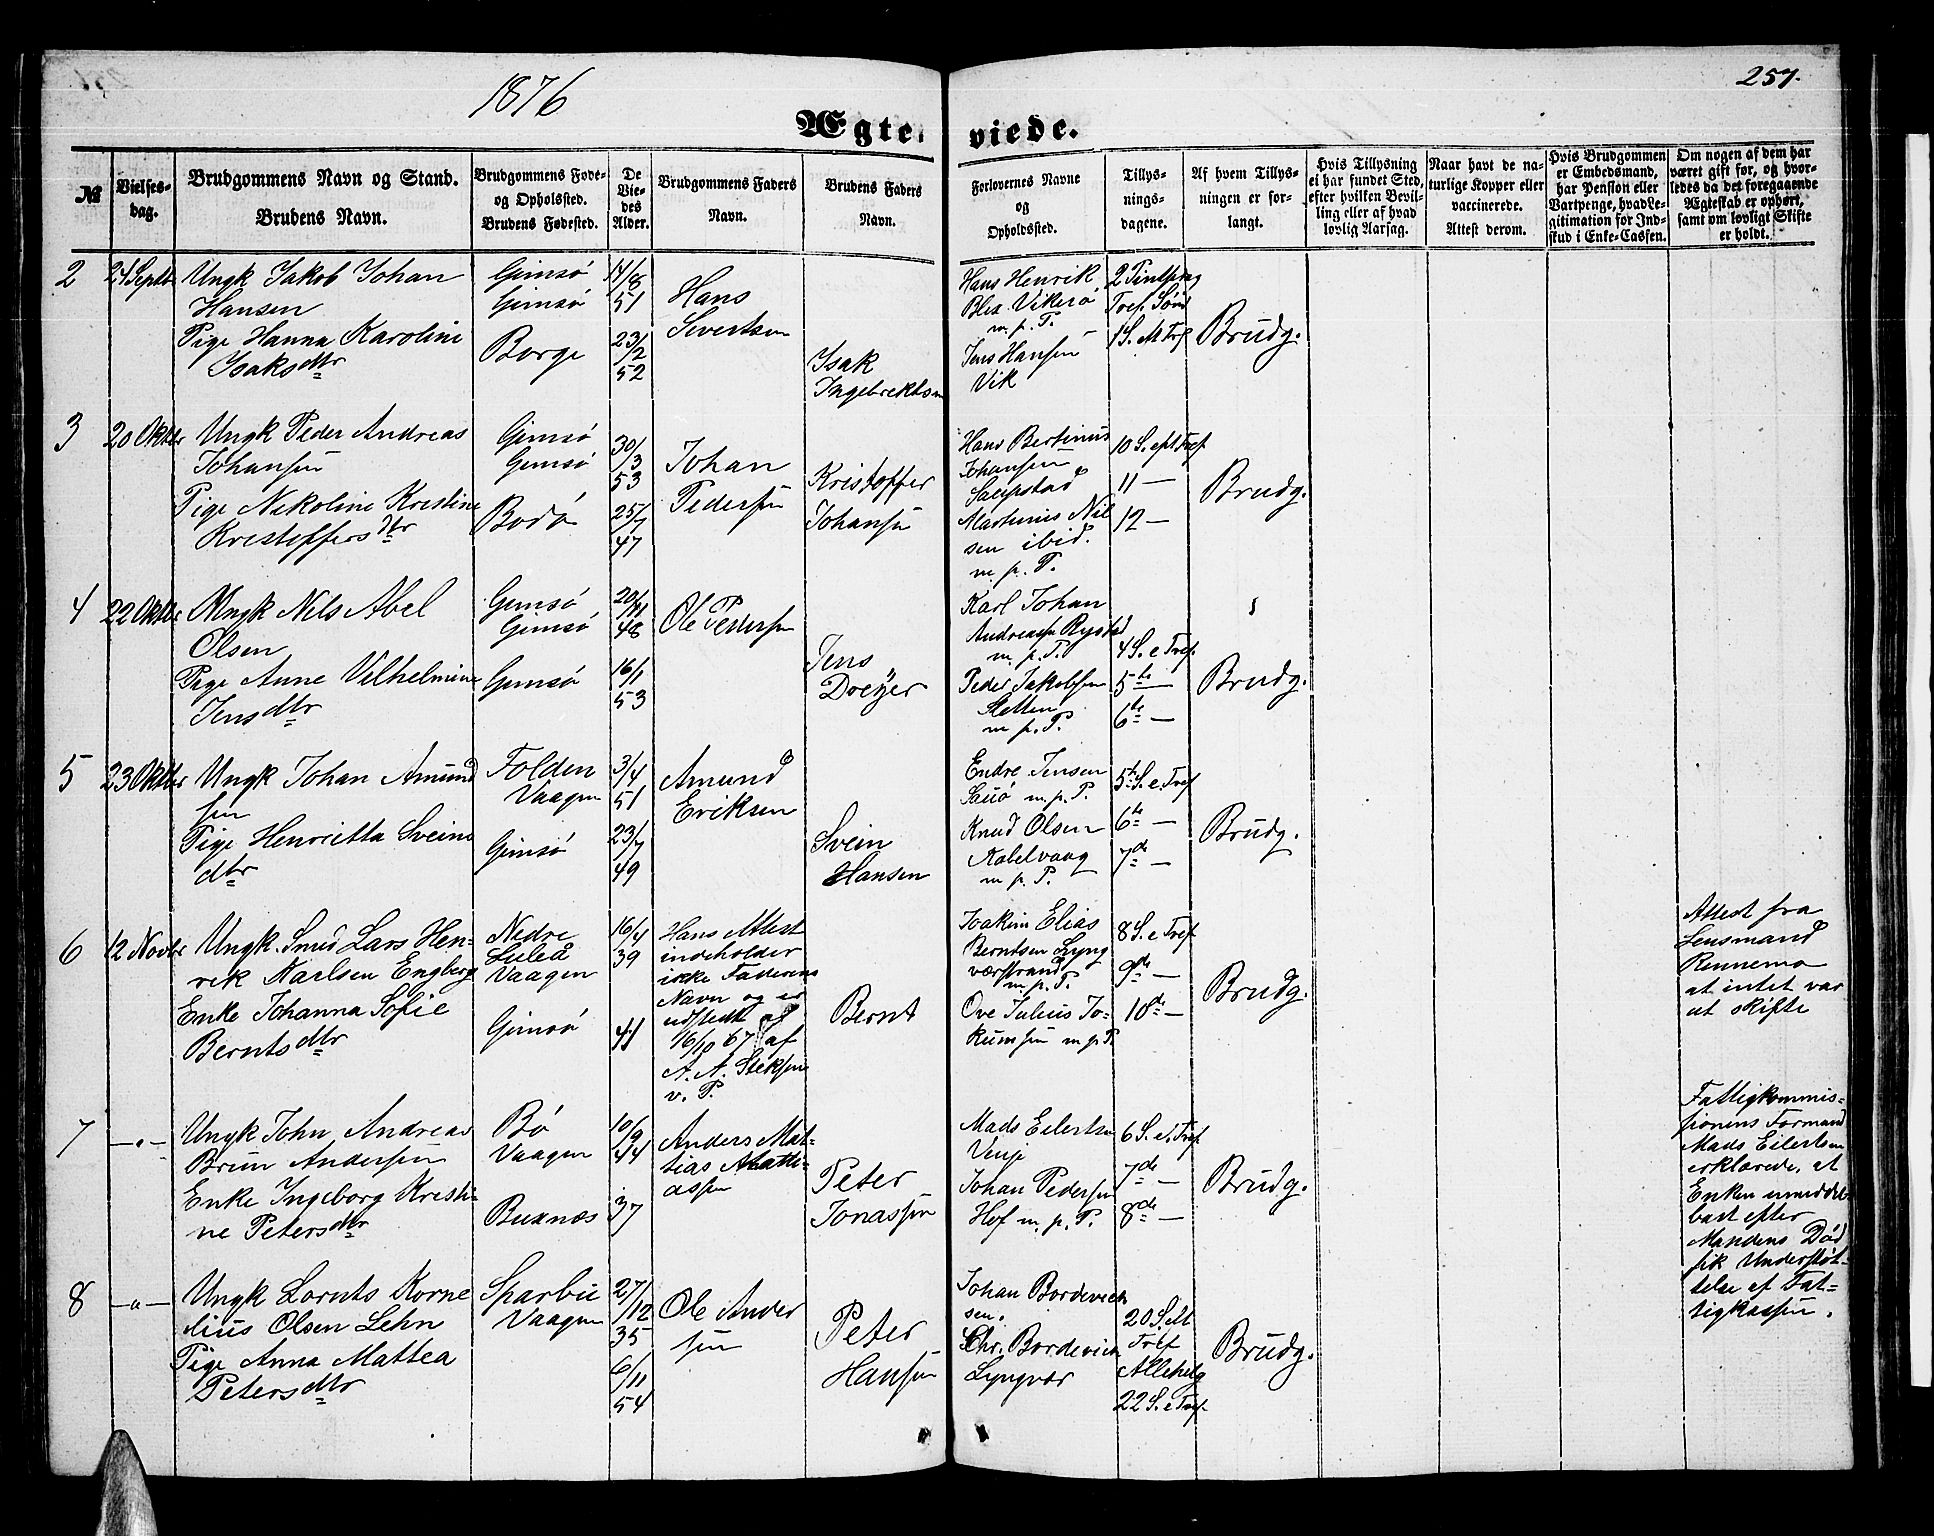 1876
257.
Ægte-
viede.
№
Vielses-
dag.
Brudgommens Navn og Stand.
Brudens Navn.
Brudgommens Føde-
og Opholdssted.
Brudens Fødested.
De
Vie-
des
Alder.
Brudgommens Faders
Navn.
Brudens Faders
Navn.
Forlovernes Navne
og
Opholdssted.
Tillys-
nings-
dagene.
Af hvem Tillys-
ningen er for-
langt.
Hvis Tillysning
ei har fundet Sted,
efter hvilken Bevil-
ling eller af hvad
lovlig Aarsag.
Naar havt de na-
turlige Kopper eller
vaccinerede.
Attest derom.
Hvis Brudgommen
er Embedsmand,
har Pension eller
Vartpenge, hvad Le-
gitimation for Ind-
skud i Enke-Cassen.
Om nogen af dem har
været gift før, og hvor-
ledes da det foregaaende
Ægteskab er ophørt,
samt om lovligt Skifte
er holdt.
2
24 Septbr
Ungk Jakob Johan
Hansen
Pige Hanna Karoline
Isaksdtr
Gimsø
Gimsø
Borge
14/8
51
23/2
52
Hans
Sivertsen
Isak
Ingebrektsen
Hans Henrik
m. p. P.
Jens Hansen
Vik
Brudg.
3
20 Oktbr
Ungk Peder Andreas
Johansen
Pige Nikoline Kristine
Kristoffersdtr
Gimsø
Gimsø
Bodø
30/3
53
25/7
47
Johan
Pedersen
Kristoffer
Johansen
Hans Bertinus
Johansen
Saupstad
Martinus Nil
sen ibid.
m. p. P.
10 S. eft Tref
11 —
12 —
Brudg.
4
22 Oktbr
Ungk Nils Abel
Olsen
Pige Anne Vilhelmine
Jensdtr
Gimsø
Gimsø
Gimsø
20/11
48
16/1
53
Ole Pedersen
Jens
Dreyer
Karl Johan
Andreassen Rystad
m. p. P.
Peder Jakobsen
Sletten
m. p. P.
4 S. e Tref.
5te —
6te —
Brudg.
5
23 Oktbr
Ungk Johan Amund
sen
Pige Henrietta Svein
dtr
Folden
Vaagen
Gimsø
3/4
51
23/7
49
Amund
Eriksen
Svein
Hansen
Endre Jensen
Sauø m. p. P.
Knud Olsen
Kabelvaag
m. p. P.
5te S. e. Tref
6te —
7de —
Brudg.
6
12 Novbr
Ungk. Smed Lars Hen-
rik Karlsen Engberg
Enke Johanna Sofie
Berntsdtr
Nedre
Luleå
Vaagen
Gimsø
16/4
39
41
Hans Attest
indeholder
ikke Faderens
Navn og er
udstedt
16/10 67 af
v. P.
Bernt
Joakim Elias
Berntsen Lyng
værstrand
m. p. P.
Ove Julius Jo-
kumsen m p P.
8 S. e Tref
9de —
10de —
Brudg.
Attest fra
Lensmand
Rennemo
at intet var
at skifte
7
—"—
Ungk John Andreas
Brun Andersen
Enke Ingeborg Kristi-
ne Petersdtr
Bø
Vaagen
Buxnæs
10/9
44
37
Anders Mat-
tias Matti-
assen
Peter
Jonassen
Mads Eilertsen
Johan Pedersen
Hof m. p. P.
6 S. e. Tref
7de —
8de —
Brudg.
Fattigkommis-
sionens Formand
Mads Eilertsen
erklærede, at
Enken umiddel-
bart efter
Mandens Død
fik Understøt-
telse af Fat-
tigkassen.
8
—"—
Ungk Lornts Korne
lius Olsen Lehn
Pige Anna Mattea
Petersdtr
Sparbu
Vaagen
27/12
35
6/11
54
Ole Ander
sen
Peter
Hansen
Johan Bordevich
sen.
Chr. Bordevich
Lyngvær
Tref
Allehelg
22 S. e Tref
Brudg.